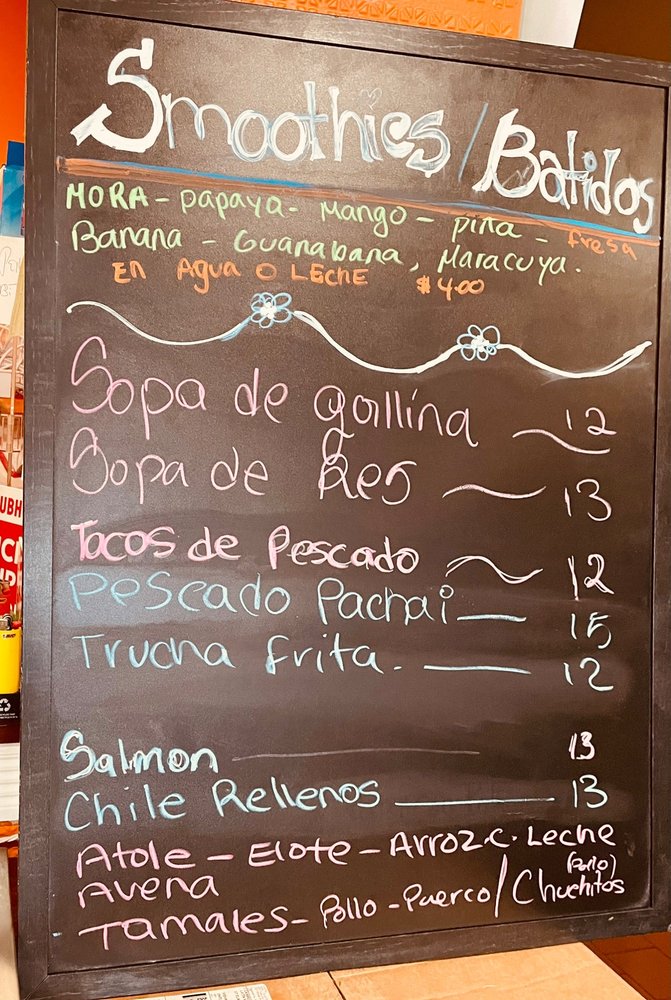 Smoothies / Batidos
MORA - papaya - Mango - piña - fresa
Banana - Guanabana, Maracuya.
En Agua O Leche $4.00
Sopa de gallina 12
Sopa de Res 13
Tacos de Pescado 12
Pescado Pachai 15
Trucha frita. 12
Salmon 13
Chile Rellenos 13
Atole - Elote - Arroz.c. Leche
Avena
(Pollo)
Tamales - Pollo - Puerco / Chuchitos